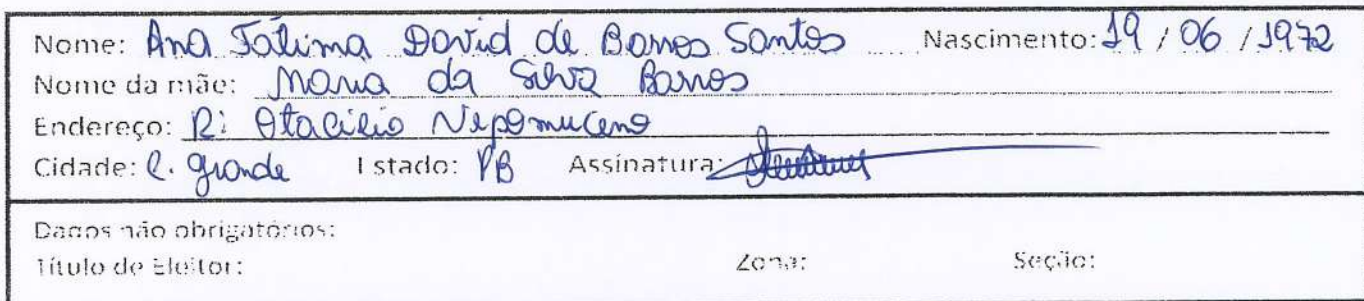 Nome: Ana Fátima David de Barros Santos Nascimento: 19 / 06 / 1972
Nome da mãe: Maria da Silva Barros
Endereço: R: Otacilio Nepomuceno
Cidade: C. Grande Estado: PB Assinatura:
Dados não obrigatórios:
Título de Eleitor: Zona: Seção: